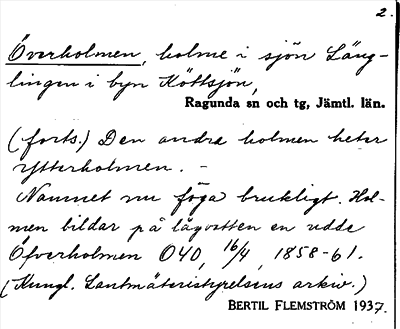 2.
Överholmen, holme i sjön Läng-
lingen i byn Köttsjön,
Ragunda sn och tg, Jämtl. län.
(forts.) Den andra holmen heter
Ytterholmen. –
Namnet nu föga brukligt. Hol-
men bildar på lågvatten en udde
Öfverholmen O40, 16/4, 1858-61.
(Kungl. Lantmäteristyrelsens arkiv.)
BERTIL FLEMSTRÖM 1937.